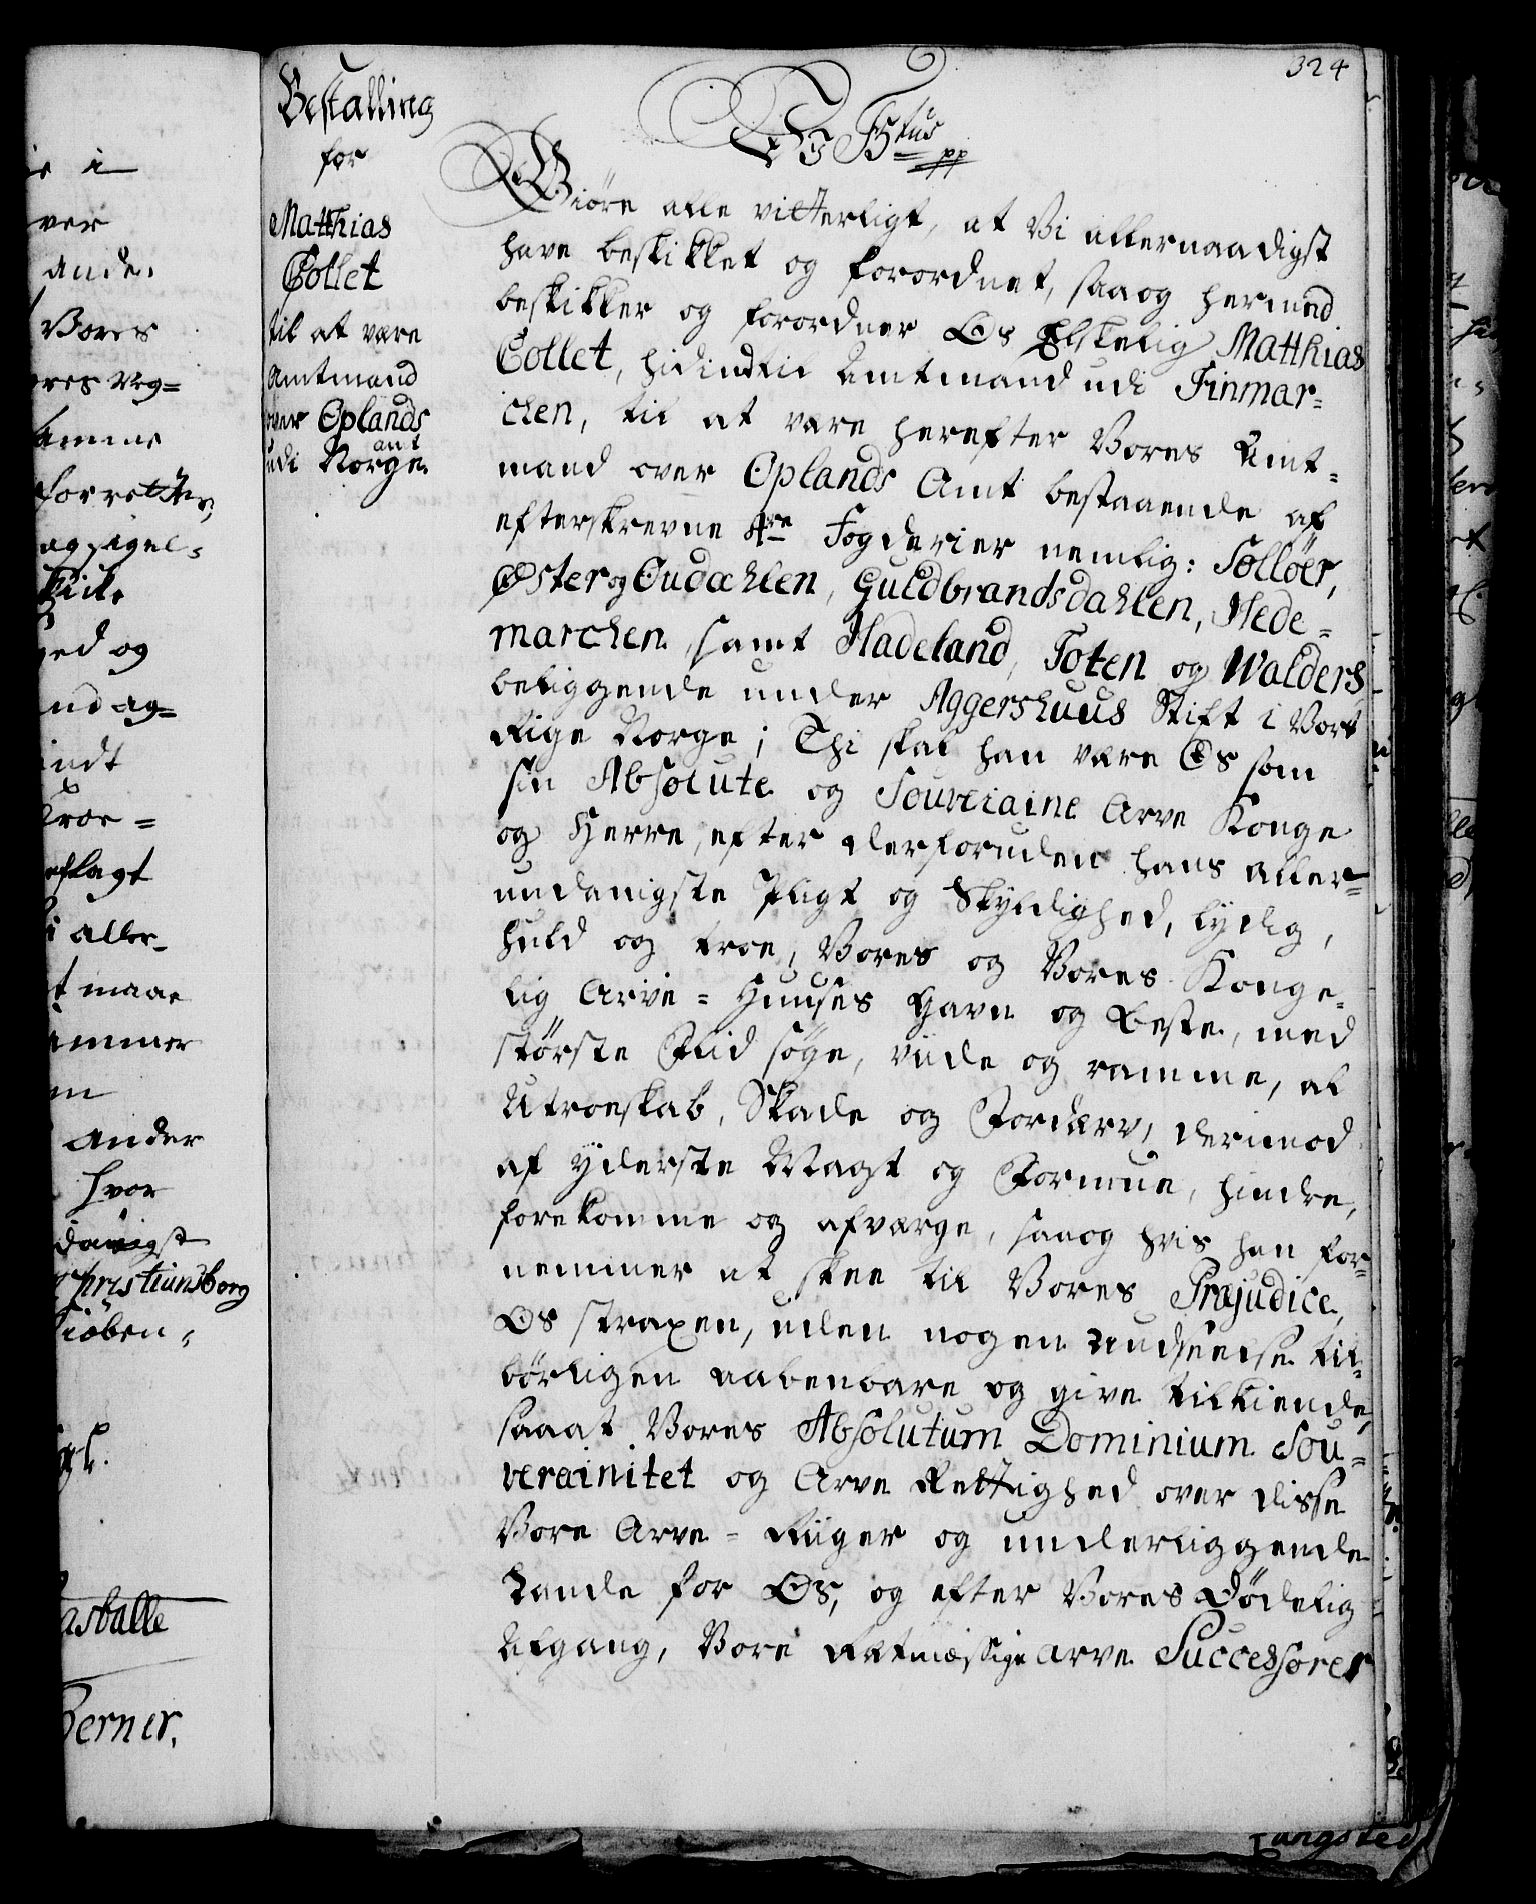 324
Bestalling
for
Matthias
Collet
til at være
Amtmand
over Oplands
amt
udi Norge.
V. F 5tus pp
Giöre alle vitterligt, at Vi allernaadigst
have beskikket og forordnet, saa og hermed
beskikker og forordner Os Elskelig Matthias
Collet, hidindtil Amtmand udi Finmar=
chen, til at være herefter Vores Amt=
mand over Oplands Amt bestaaende af
efterskrevne 4re Fogderier nemlig: Sollöer,
Øster og Oudahlen, Guldbrandsdahlen, Hede=
marchen, samt Hadeland, Toten og Walders
beliggende under Aggershuus Stift i Vort
Rige Norge; Thi skal han være Os som
sin Absolute og Souveraine Arve Konge
og Herre, efter derforuden hans aller=
undanigste Pligt og Skyldighed, lydig,
huld og troe, Vores og Vores Konge=
lig Arve=Huuses Gavn og beste, med
største Fliid søge, viide og ramme, al
Utroeskab, Skade og Fordærv, derimod
af yderste Magt og Formue, hindre,
forekomme og afværge, saa og hvis han for=
nemmer at skee til Vores Præjudice,
Os straxen, uden nogen Undseelse til=
børligen aabenbare og give tilkiende,
saa at Vores Absolutum Dominium Sou=
verainitet og Arve Rettighed over disse
Vore Arve=Riiger og underliggende
Lande for Os, og efter Vores Dødelig
Afgang, Vore Retmæssige Arve Successorer
i
ver
anden
Vores
res Reg=
samme
forretter,
og sigel=
Skik.
ed og
nd ag=
indt
troe=
eflagt
i aller=
t maae
ommer
en
ander
hvor
danigst
Christiansborg
Kiöben=
asballe
Berner.
Langsted